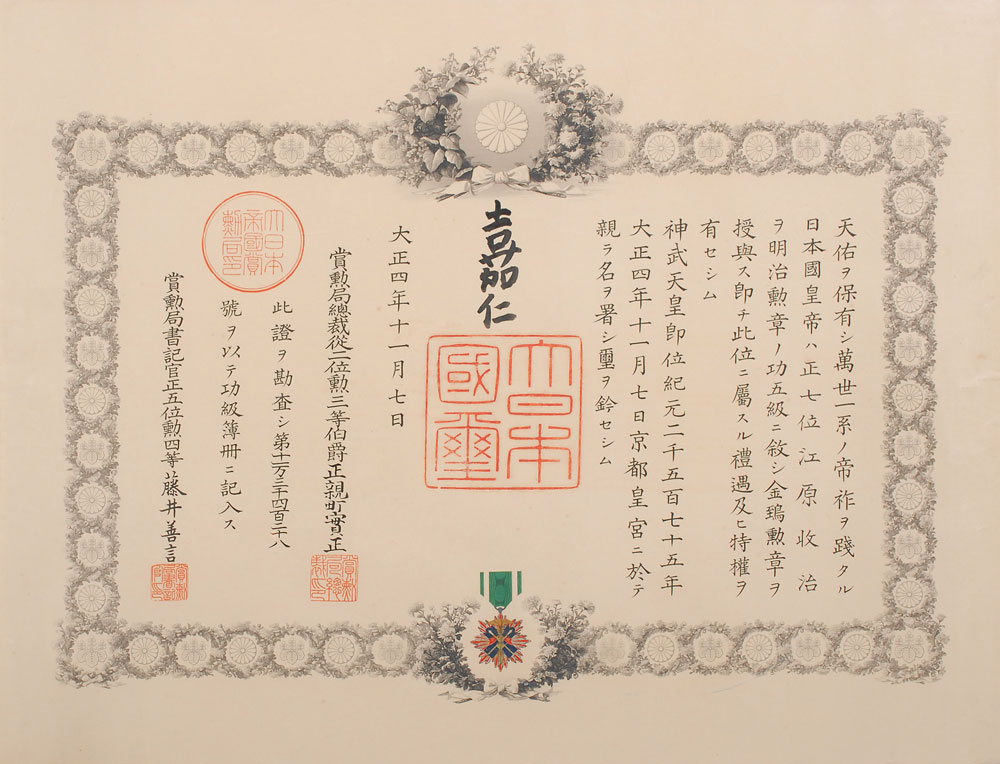 天佑ヲ保有シ萬世一系ノ帝祚ヲ踐タル
日本國皇帝ハ正七位江原收治
ヲ明治勲章ノ功五級ニ敘シ金鵄勲章ヲ
授與ス卽チ此位ニ屬スル禮遇及ヒ特權ヲ
有セシム
神武天皇卽位紀元二千五百七十五年
大正四年十一月七日京都皇宮ニ於テ
親ラ名ヲ署シ璽ヲ鈐セシム
嘉仁
大日本
國璽
大正四年十一月七日
賞勲局總裁從二位勲三等伯爵正親町實正
賞勲局總裁印
此證ヲ勘査シ第十二万三千四百二十八
號ヲ以テ功級簿冊ニ記入ス
大日本
帝國賞
勲局印
賞勲局書記官正五位勲四等藤井善言